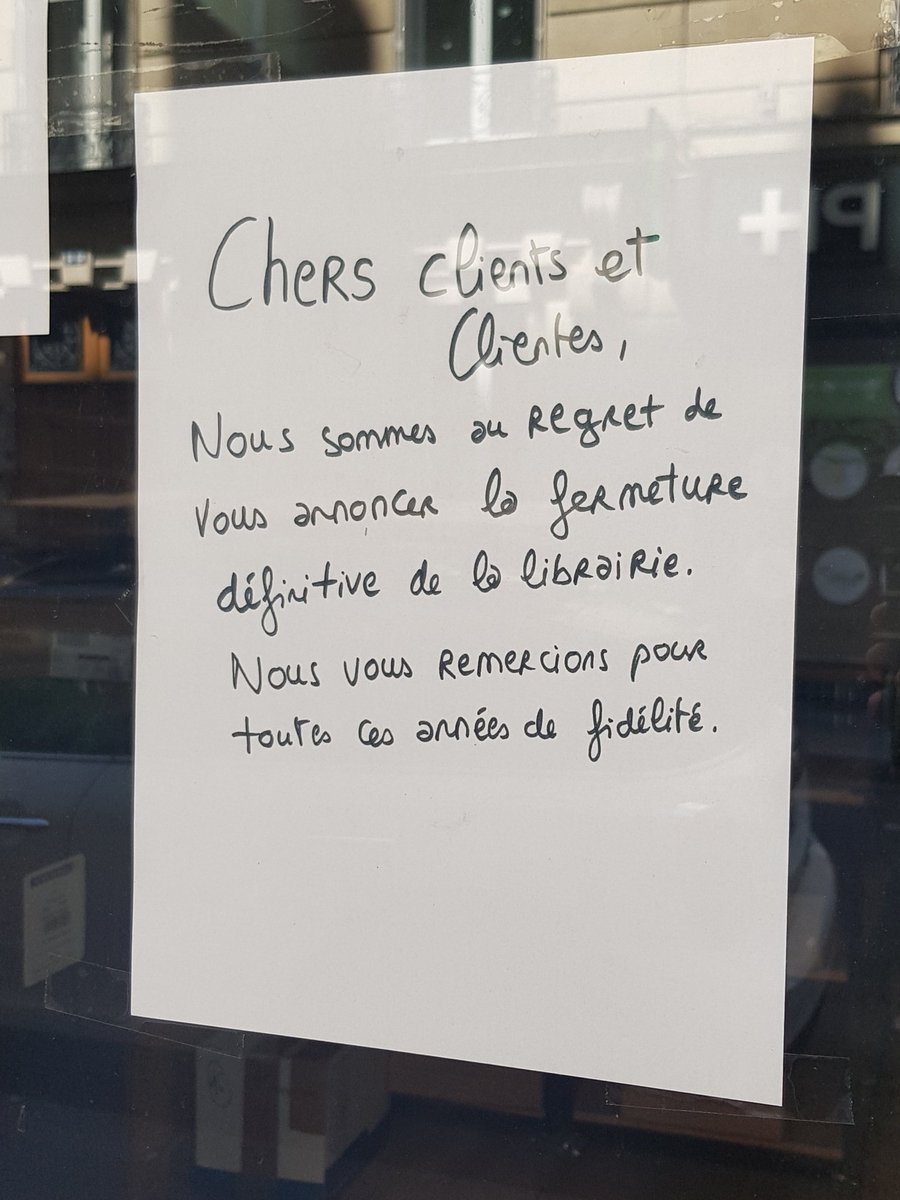 Chers clients et
Clientes,
Nous sommes au regret de
vous annoncer la fermeture
définitive de la librairie.
Nous vous remercions pour
toutes ces années de fidélité.